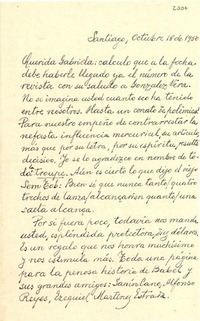 Santiago, Octubre 18 de 1950
Querida Gabriela: calculo que a la fecha
debe haberle llegado ya el número de la
revista con su saludo a González Vera.
No se imagina usted cuánto eco ha tenido
entre nosotros. Hasta un conato de polémica!
Para nuestro empeño de contrarrestar la
nefasta influencia mercurial, su artículo,
más que por su letra, por su espíritu, resulta
decisivo. Yo se lo agradezco en nombre de to-
da la troupe. Aún es cierto lo que dijo el viejo
Sem Tob: Pero si que nunca tanto/quatro
trechos de lanza/alcançarían quanto/una
saeta alcança.
Por si fuera poco, todavía nos manda
usted, espléndida protectora, dólares.
Es un regalo que nos honra muchísimo
y nos estimula más. Toda una página
para la penosa historia de Babel y
sus grandes amigos: Sanín Cano, Alfonso
Reyes, Ezequiel Martínez Estrada.